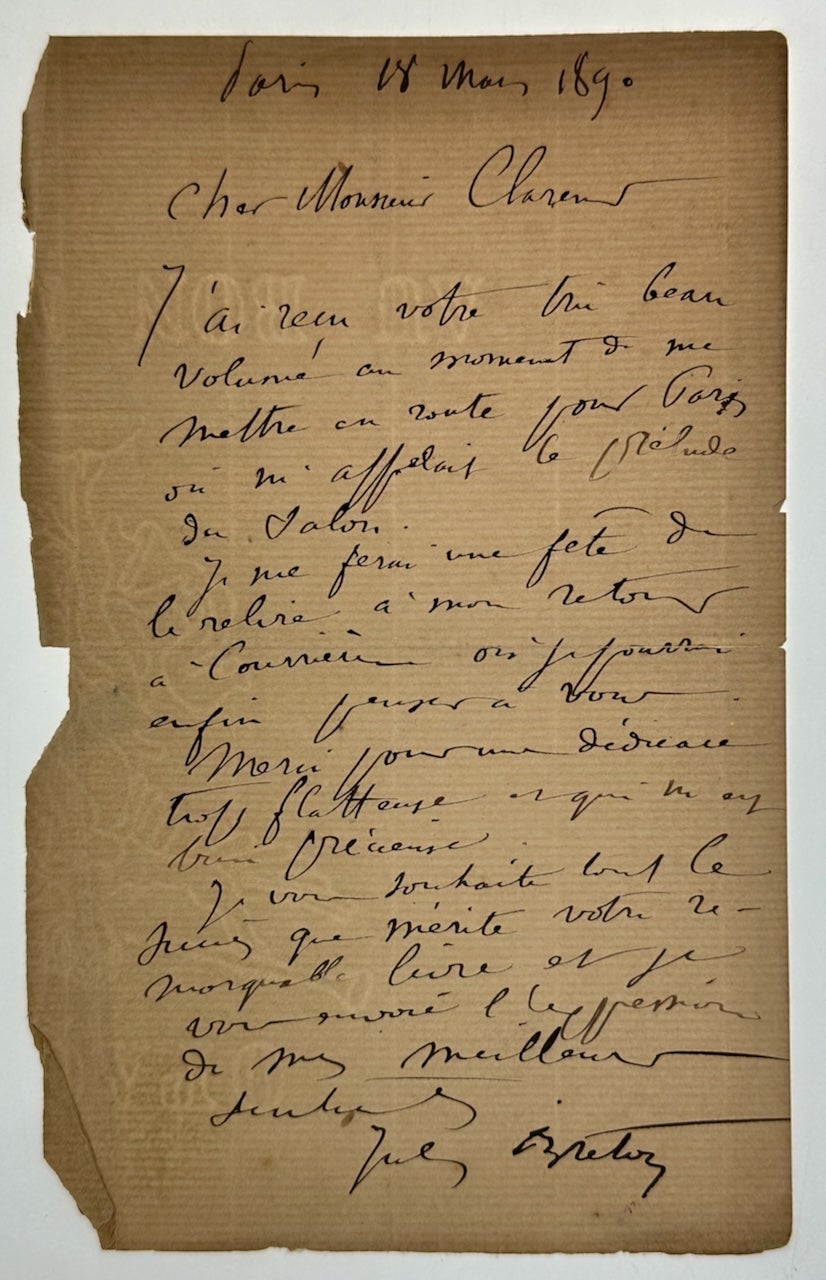 Paris 18 Mars 1890
Cher Monsieur
J'ai reçu votre très beau
volume au moment de me
mettre en route pour Paris
où m'appelait le prélude
du Salon.
Je me ferai une fête de
le relire à mon retour
à Courrières où je pourrai
enfin penser à vous.
Merci pour une dédicace
trop flatteuse et qui m'est
bien précieuse.
Je vous souhaite tout le
succès que mérite votre re-
marquable livre et je
vous envoie l'expression
de mes meilleurs
sentiments
Jules Breton